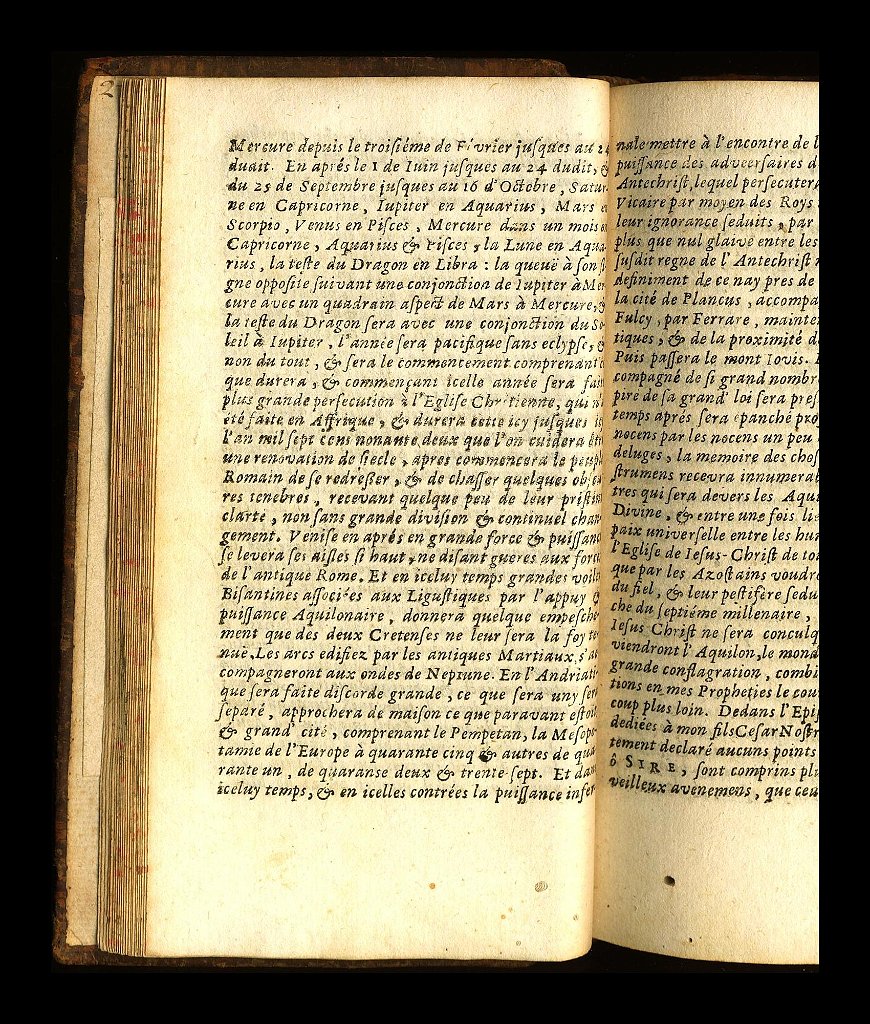 2
Mercure depuis le troisiéme de Février juſques au 24
duait. En aprés le 1 de Iuin juſques au 24 dudit, &
du 25 de Septembre juſques au 16 d'Octobre, Satur
ne en Capricorne, Iupiter en Aquarius, Mars e
Scorpio, Venus en Piſces, Mercure dans un mois e
Capricorne, Aquarius & Piſces, la Lune en Aqua
rius, la teſte du Dragon en Libra : la queuë à ſon ſi
gne oppoſite ſuivant une conjonction de Iupiter à Mer
cure avec un quadrain aſpect de Mars à Mercure, &
la teſte du Dragon ſera avec une conjonction du So
leil à Iupiter, l'année ſera pacifique ſans eclypſe, &
non du tout, & ſera le commencement comprenant
que durera, & commençant icelle année ſera fai
plus grande perſecution à l'Egliſe Chrêtienne, qui n'
été faite en Affrique, & durera cette icy juſques
l'an mil ſept cens nonante deux que l'on cuidera êt
une renovation de ſiecle, apres commencera le peupl
Romain de ſe redreſſer, & de chaſſer quelques obſcu
res tenebres, recevant quelque peu de leur priſtin
clarté, non ſans grande diviſion & continuel chan
gement. Veniſe en aprés en grande force & puiſſanc
ſe levera ſes aiſles ſi haut, ne diſant gueres aux force
de l'antique Rome. Et en iceluy temps grandes voile
Biſantines aſſociées aux Liguſtiques par l'appuy &
puiſſance Aquilonaire, donnera quelque empeſche
ment que des deux Cretenſes ne leur ſera la foy te
nuë. Les arcs edifiez par les antiques Martiaux, s'a
compagneront aux ondes de Neptune. En l'Andriati
que ſera faite diſcorde grande, ce que ſera uny ſera
ſeparé, approchera de maiſon ce que paravant eſtoit
& grand' cité, comprenant le Pempetan, la Meſopo
tamie de l'Europe à quarante cinq & autres de qua
rante un, de quaranse deux & trente-ſept. Et dan
iceluy temps, & en icelles contrées la puiſſance infer
nale mettre à l'encontre de l
puiſſance des adverſaires d
Antechriſt, lequel perſecuter
Vicaire par moyen des Roys
leur ignorance ſeduits, par
plus que nul glaive entre les
ſuſdit regne de l'Antechriſt
definiment de ce nay pres de
la cité de Plancus, accompa
Fulcy, par Ferrare, mainte
tiques, & de la proximité d
Puis paſſera le mont Iovis.
compagné de ſi grand nombr
pire de ſa grand' loi ſera pre
temps aprés ſera épanché pro
nocens par les nocens un peu
deluges, la memoire des choſ
ſtrumens recevra innumerab
tres qui ſera devers les Aqui
Divine, & entre une fois lié
paix univerſelle entre les hu
l'Egliſe de Ieſus-Chriſt de to
que par les Azoſtains voudr
du fiel, & leur peſtifére ſedu
che du ſeptiéme millenaire,
Ieſus Chriſt ne ſera conculq
viendront l'Aquilon, le mond
grande conflagration, combi
tions en mes Propheties le cou
coup plus loin. Dedans l'Epiſ
dediées à mon fils Ceſar Noſtr
tement declaré aucuns points
ô SIRE, ſont comprins plu
veilleux avenemens, que ceu